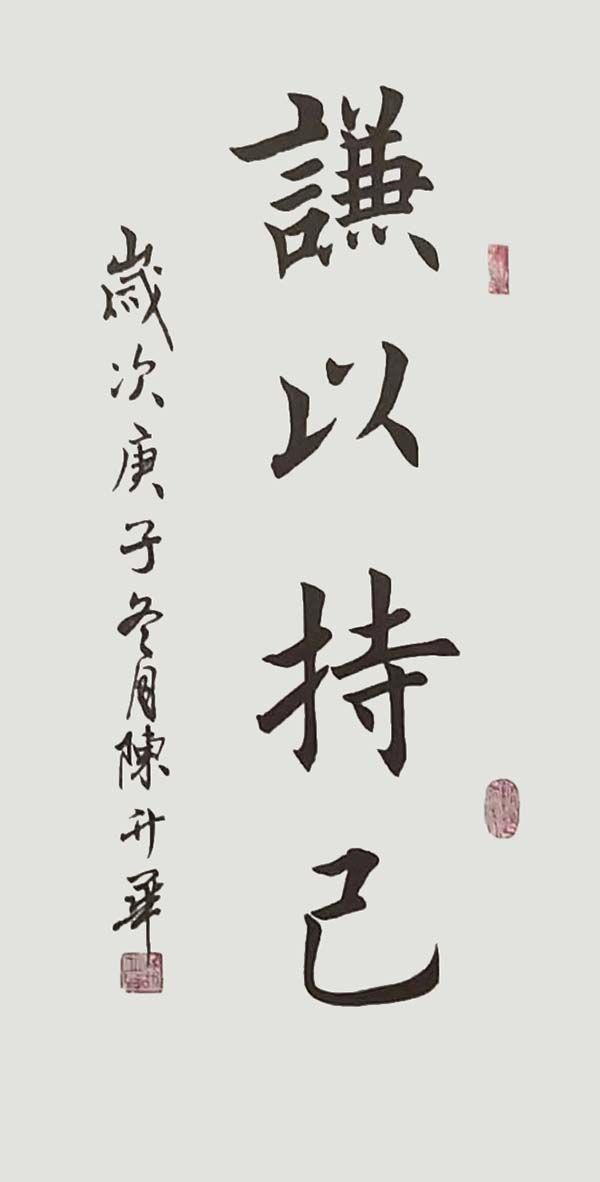 謙以持己
歲次庚子冬月陳升華